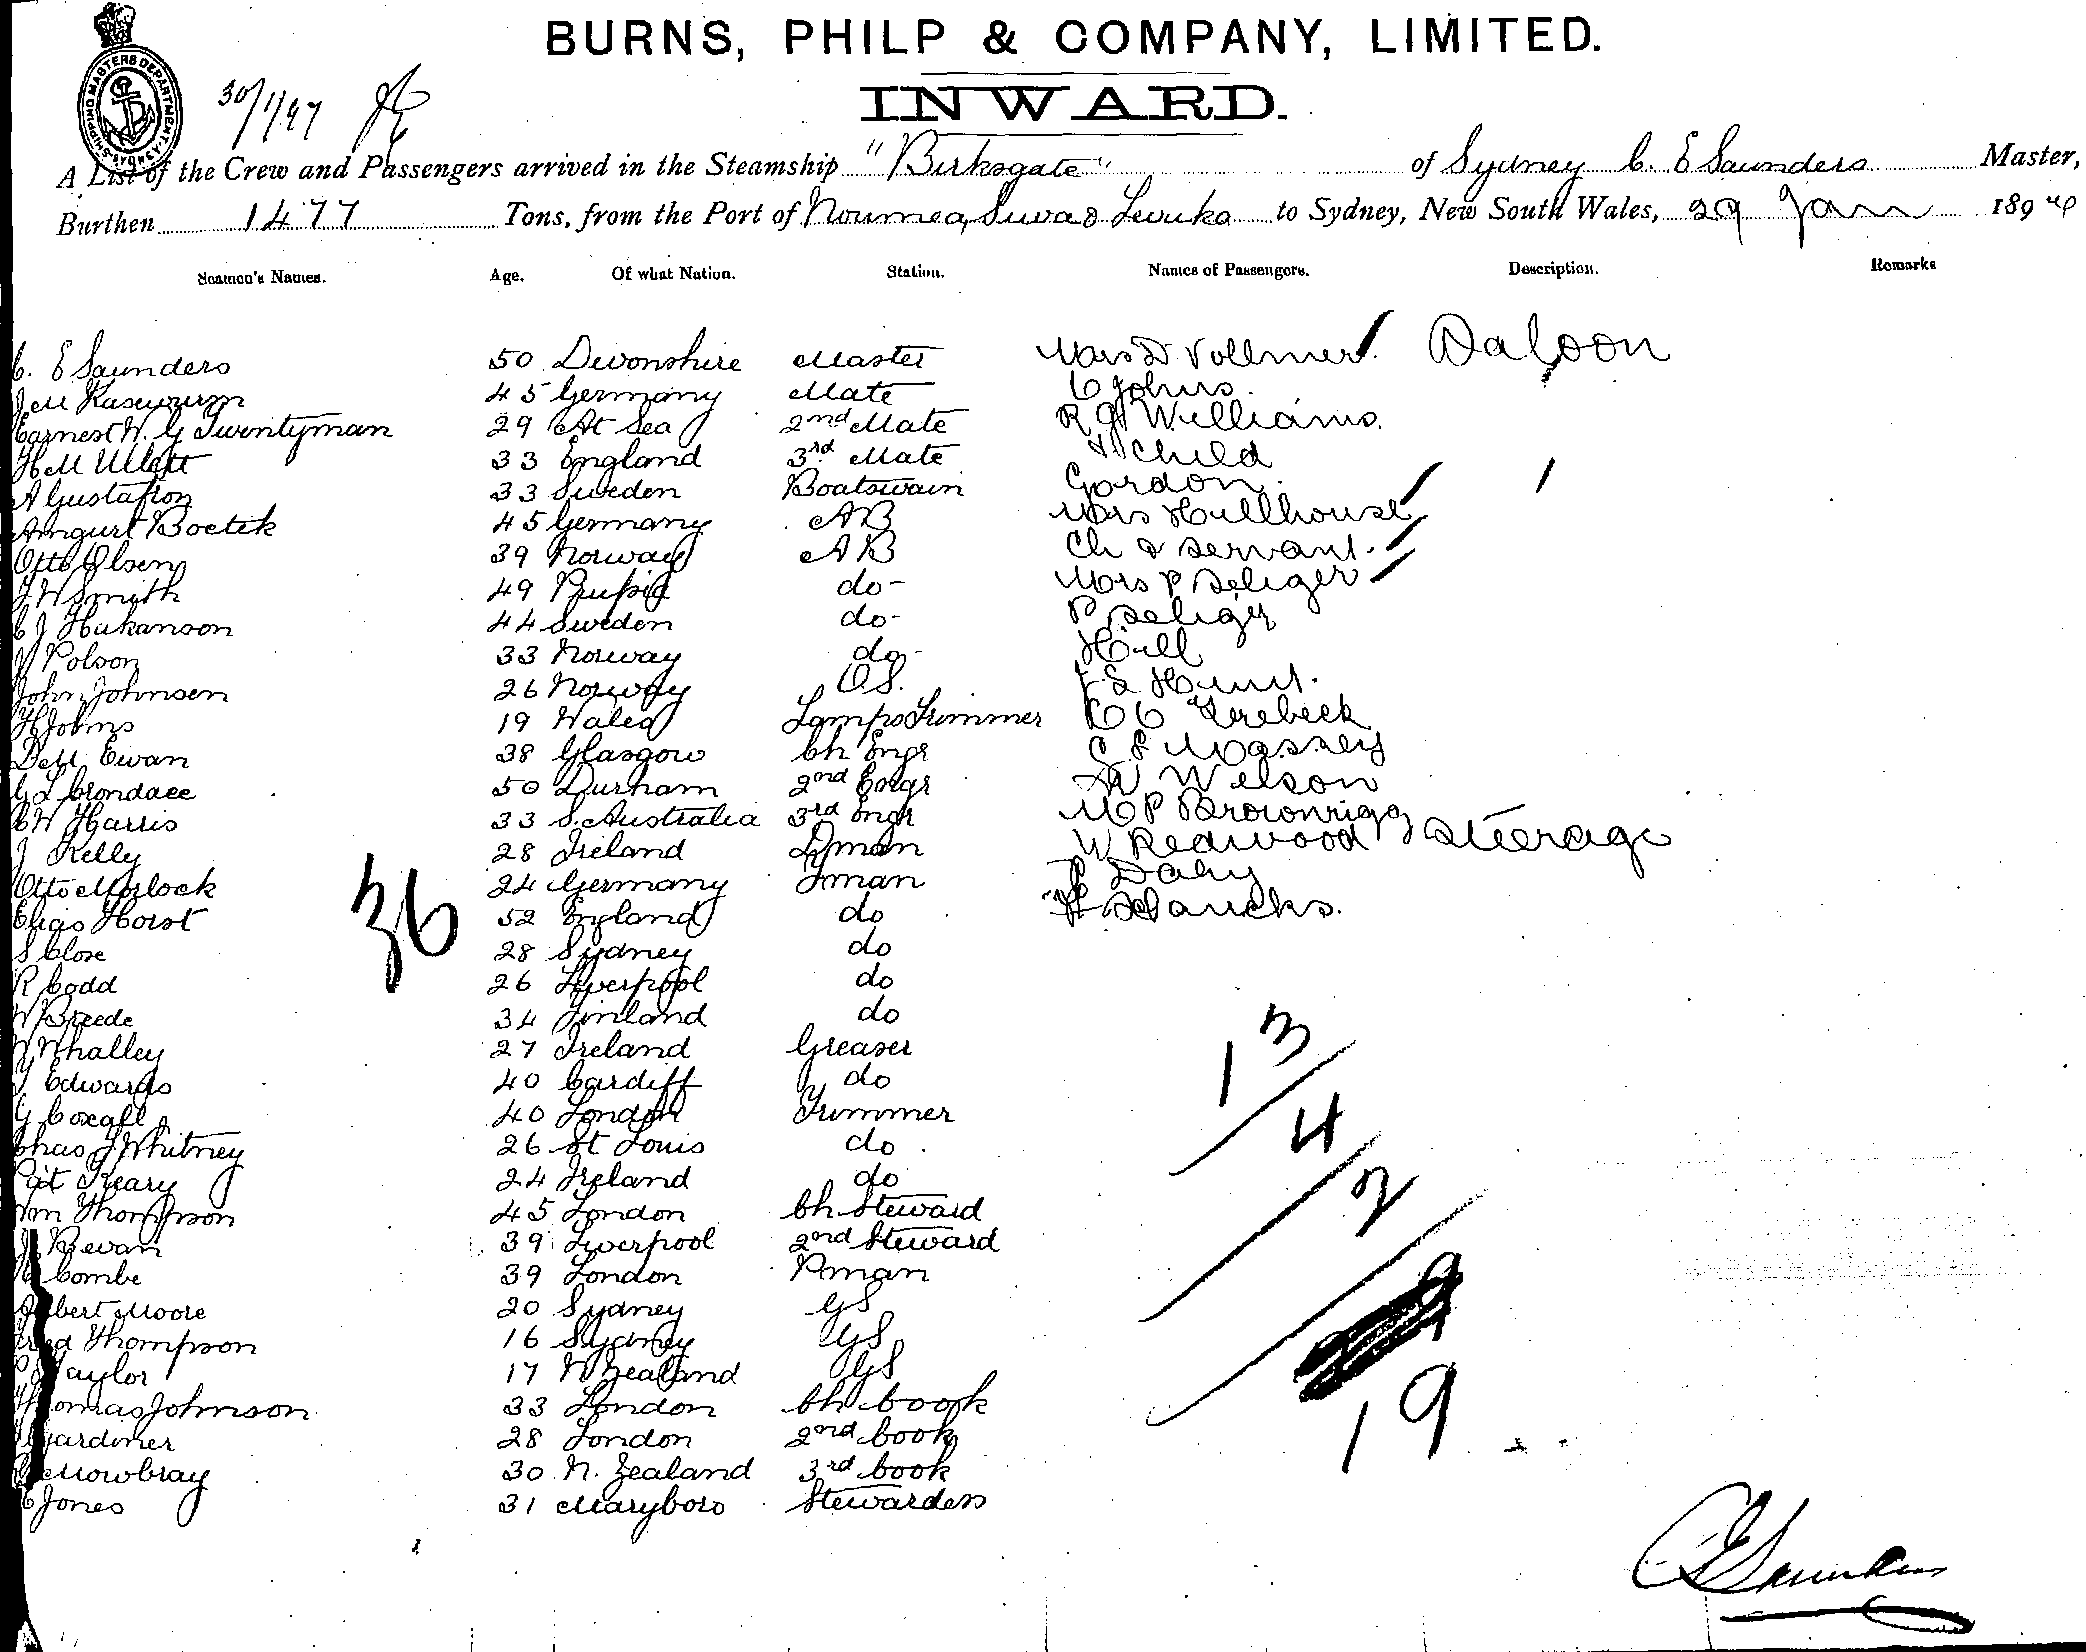 BURNS, PHILP & COMPANY, LIMITED.
INWARD.
SHIPPING MASTERS DEPARTMENT SYDNEY
30/1/97
A List of the Crew and Passengers arrived in the Steamship "Birksgate" of Sydney C. E Saunders Master,
Burthen 1477 Tons, from the Port of Noumea, Suva & Levuka to Sydney, New South Wales, 29 Jan 189
Seamen's Names. Age. Of what Nation. Station. Names of Passengers. Description. Remarks
C. E Saunders 50 Devonshire Master Mrs D Vollmer. Saloon
45 Germany Mate C Johns.
Earnest W. G Twentyman 29 At Sea 2nd Mate R G Williams.
33 England 3rd Mate Child
A Gustafson 33 Sweden Boatswain Gordon.
Boetik 45 Germany AB Mrs Hillhouse
Otto Olsen 39 Norway AB Ch & servant.
J W Smith 49 Russia do- Mrs P Seliger
C J Hakanson 44 Sweden do- P Seliger
Polson 33 Norway do- Hill
John Johnsen 26 Norway OS. Hunt.
H Johns 19 Wales Lamp Trimmer
Ewan 38 Glasgow Ch Engr Massey
G L Crondace 50 Durham 2nd Engr W Wilson
C W Harris 33 S. Australia 3rd Engr M P Brownrigg
J Kelly 28 Ireland Dman W Redwood Steerage
Otto Morlock 24 Germany Fman Daly
Elias Horst 52 England do
S Close 28 Sydney do
R Codd 26 Liverpool do
W Breede 34 Finland do
W Whalley 27 Ireland Greaser
J Edwards 40 Cardiff do
G Coxall 40 London Trimmer
Chas J Whitney 26 St Louis do
Pat Keary 24 Ireland do
Wm Thompson 45 London Ch Steward
Bevan 39 Liverpool 2nd Steward
Combe 39 London Pman
Albert Moore 20 Sydney GS
Fred Thompson 16 Sydney GS
Taylor 17 N Zealand GS
Thomas Johnson 33 London Ch Cook
Gardiner 28 London 2nd Cook
Mowbray 30 N. Zealand 3rd Cook
C Jones 31 Maryboro Stewardess
36
13
4
2
19
C E Saunders